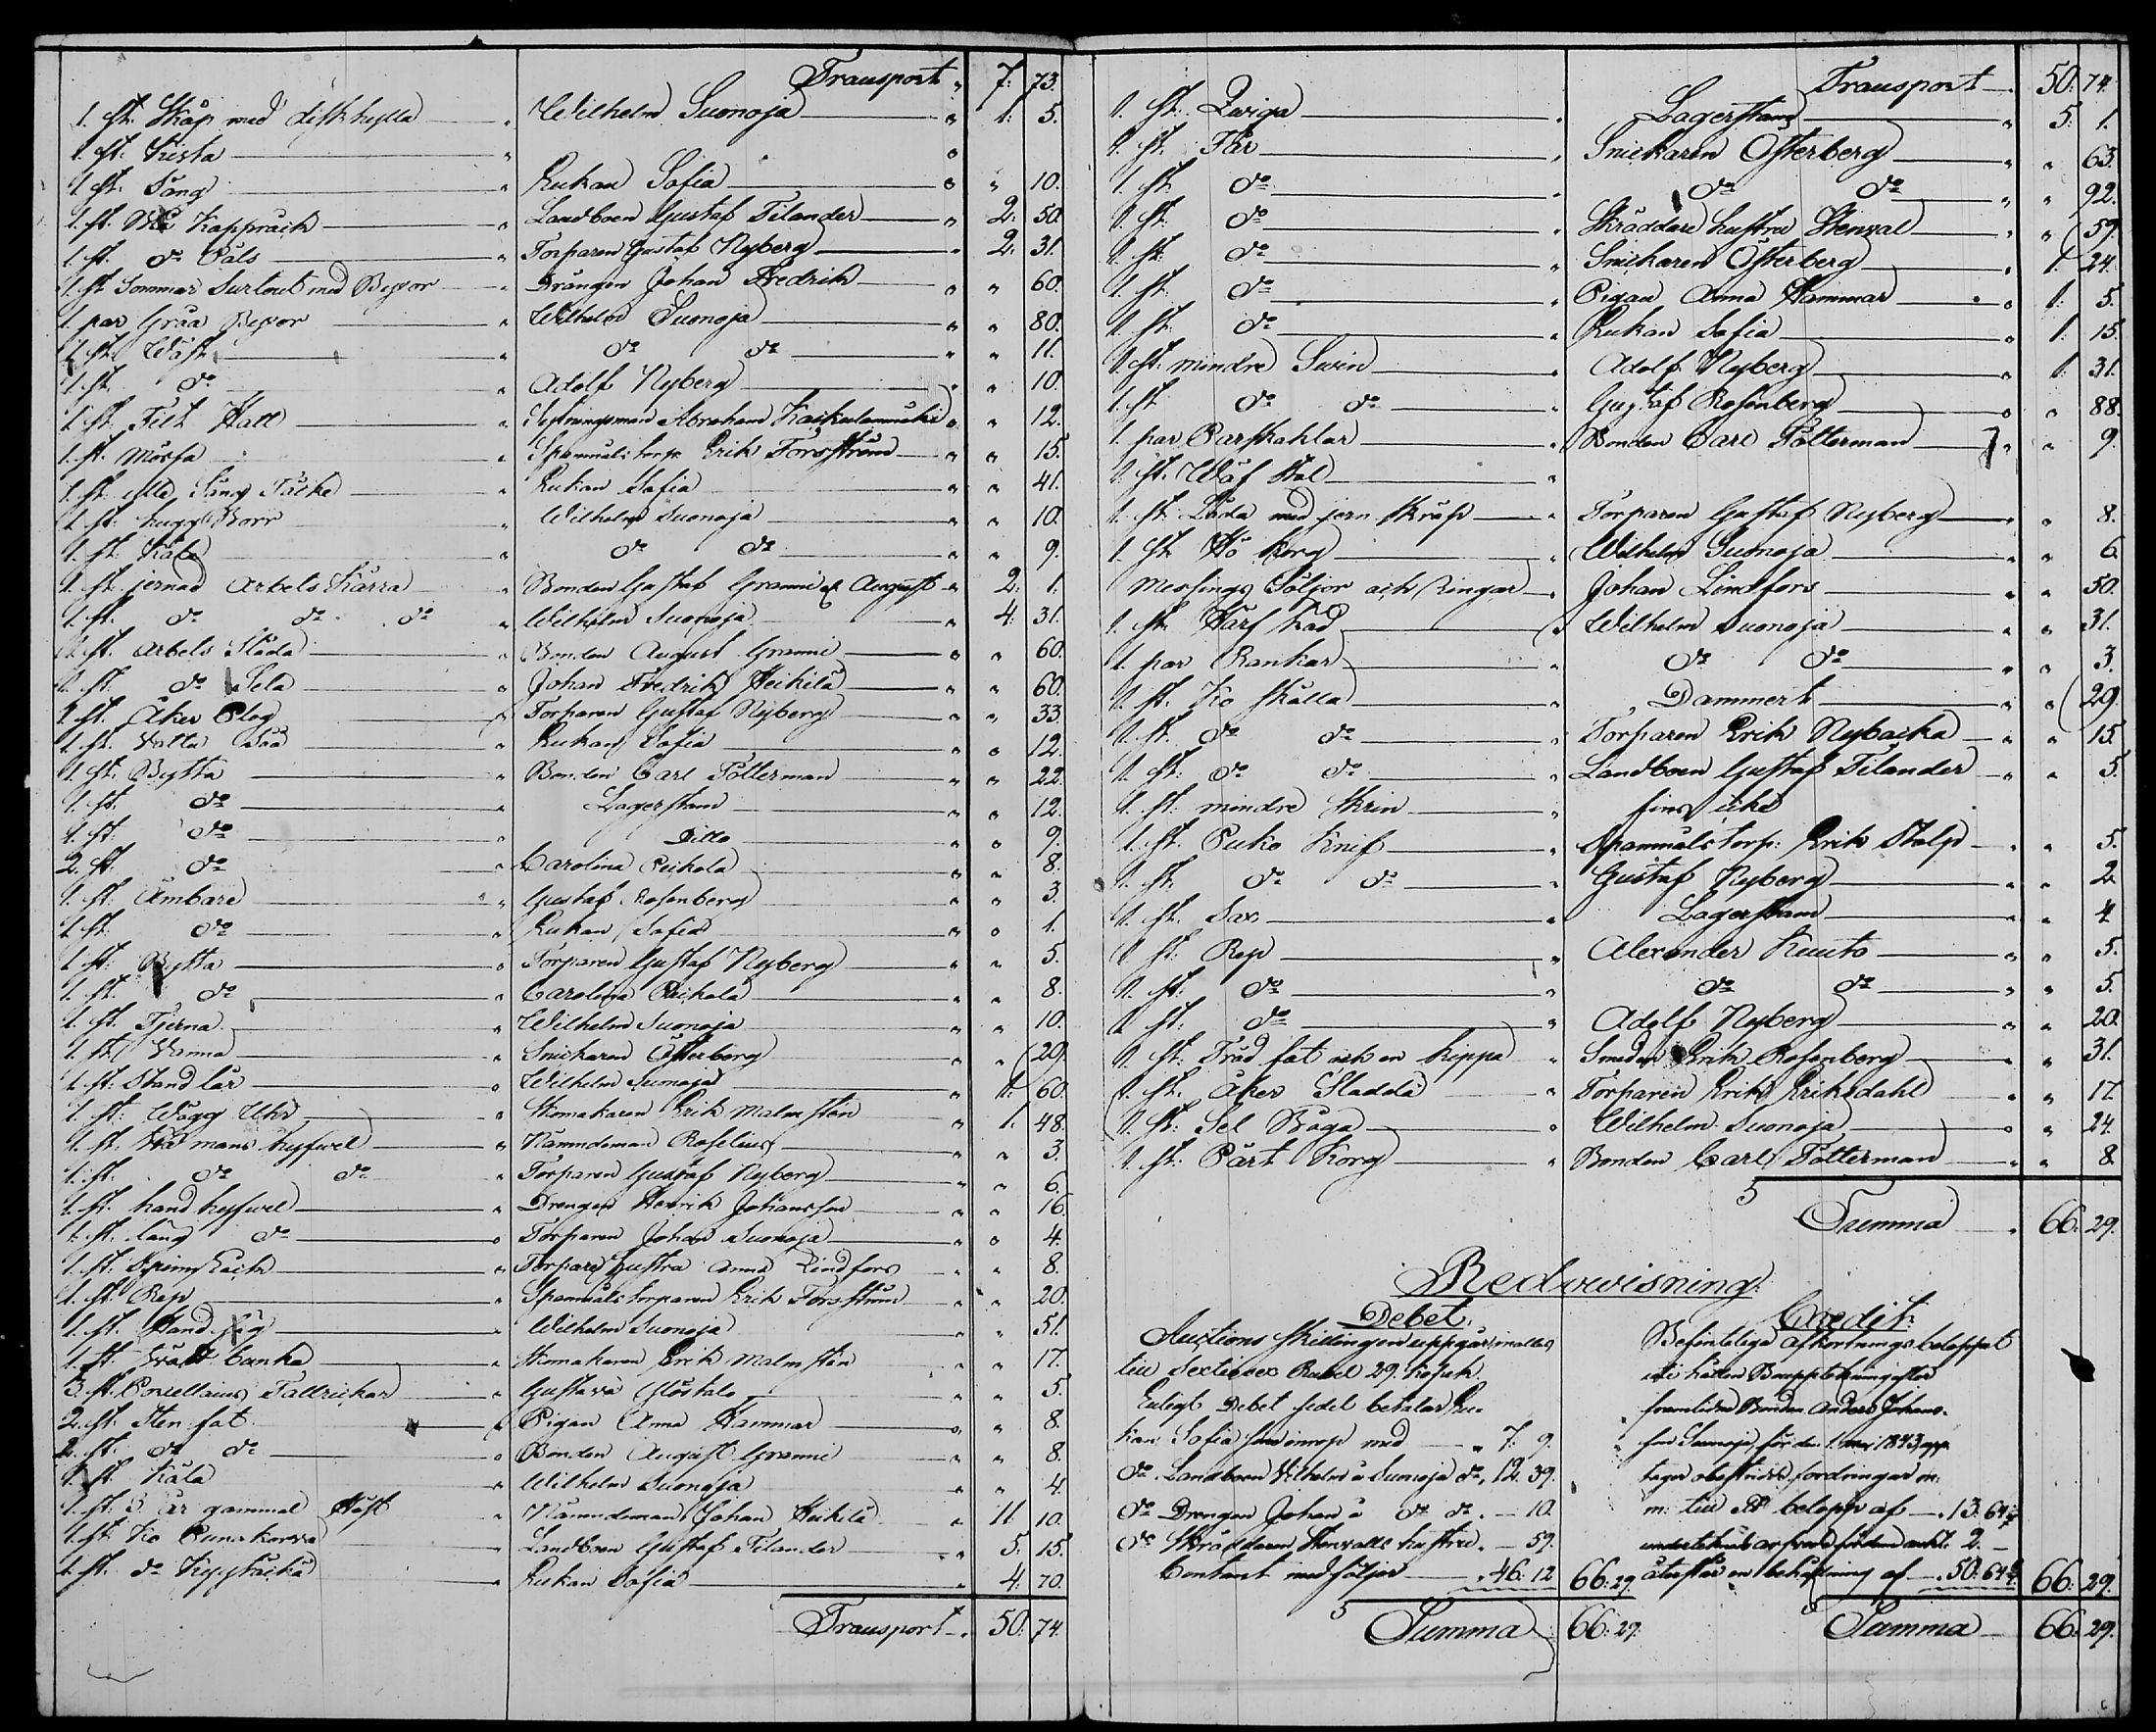 Transport " 7: 73.
1. st. Skåp med diskhylla " Wilhelm Suonoja " 1: 5.
1. st. Kista " "
1. st. Säng " Enkan Sofia " " 10.
1. st. Kappräck " Landboen Gustaf Tilander " 2: 50.
1. st. do Päls " Torparen Gustaf Nyberg " 2: 31.
1. st. Sommar Surtout med Byxor " Drängen Johan Fredrik " " 60.
1. par Gråa Byxor " Wilhelm Suonoja " " 80.
1. st. Wäst " do do " " 11.
1. st. do " Adolf Nyberg " " 10.
1. st. Filt Hatt " Abraham " " 12.
1. st. Mössa " Spanmåls torp. Erik Forsström " " 15.
1. st. Säng Täcke " Enkan Sofia " " 41.
1. st. hugg Borr " Wilhelm Suonoja " " 10.
1. st. Käla " do do " " 9.
1. st. jernad Arbets Kärra " Bonden Gustaf Granni & August " 2: 1.
1. st. do do do " Wilhelm Suonoja " 4: 31.
1. st. Arbets Släda " Bonden August Granni " " 60.
1. st. do Sela " Johan Fredrik Heikilä " " 60.
1. st. Åker Plog " Torparen Gustaf Nyberg " " 33.
1. st. Såå " Enkan Sofia " " 12.
1. st. Bytta " Bonden Carl Pålterman " " 22.
1. st. do " Lagerstam " " 12.
1. st. do " Ditto " " 9.
2. st. do " Carolina Peikola " " 8.
1. st. Ämbare " Gustaf Rosenberg " " 3.
1. st. do " Enkan Sofia " " 1.
1. st. Bytta " Torparen Gustaf Nyberg " " 5.
1. st. do " Carolina Peikola " " 8.
1. st. Tjerna " Wilhelm Suonoja " " 10.
1. st. Kanna " Snickaren Österberg " " 29.
1. st. Stand lår " Wilhelm Suonoja " 1: 60.
1. st. Wägg Uhr " Skomakaren Erik Malmsten " 1: 48.
1. st. Två mans hyfwel " Nämndeman Roselius " " 3.
1. st. do do " Torparen Gustaf Nyberg " " 6.
1. st. hand hyfwel " Drengen Henrik Johansson " " 16.
1. st. lång do " Torparen Johan Suonoja " " 4.
1. st. Spinn " Torpare hustru Anna Lindfors " " 8.
1. st. Rep " Spanmåls torparen Erik Forsström " " 20.
1. st. Hand såg " Wilhelm Suonoja " " 51.
1. st. banka " Skomakaren Erik Malmsten " " 17.
3. st. Porcellains Tallrickar " Gustava " " 5.
2. st. Sten fat " Pigan Anna Hammar " " 8.
2. st. do do " Bonden August Granni " " 8.
1. st. Käla " Wilhelm Suonoja " " 4.
1. st. 3 år gammal Häst " Nämndeman Johan Heikilä " 11. 10.
1. st. Ko Punakorva " Landboen Gustaf Tilander " 5: 15.
1. st. do " Enkan Sofia " 4: 70.
Transport " 50: 74.
Transport " 50: 74.
1. st. Qwiga " Lagerstam " 5: 1.
1. st. Får " Snickaren Österberg " " 63.
1. st. do " do do " " 92.
1. st. do " Skräddare hustru Stenval " " 59.
1. st. do " Snickaren Österberg " 1. 24.
1. st. do " Pigan Anna Hammar " 1: 5.
1. st. do " Enkan Sofia " 1: 15.
1. st. mindre Swin " Adolf Nyberg " 1: 31.
1. st. do do " Gustaf Rosenberg " " 88.
1. par Parskaklar " Bonden Carl Pålterman " " 9.
1. st. Wäf Stol "
1. st. Låda med jern skräp " Torparen Gustaf Nyberg " " 8.
1. st. Hö korg " Wilhelm Suonoja " " 6.
Messings Söljor och Ringar " Johan Lindfors " " 50.
1. st. Harf " Wilhelm Suonoja " " 31.
1. par Rankar " do do " " 3.
1. st. Ko skälla " Dammert " " 29.
1. st. do do " Torparen Erik Nybacka " " 15.
1. st. do do " Landboen Gustaf Tilander " " 5.
1. st. mindre skrin " fins icke
1. st. Puko Knif " Spanmåls torp: Erik Stolp " " 5.
1. st. do do " Gustaf Nyberg " " 2.
1. st. Sax " Lagerstam " " 4.
1. st. Rep " Alexander Kuuto " " 5.
1. st. do " do do " " 5.
1. st. do " Adolf Nyberg " " 20.
1. st. Träd fat och en kippa " Smeden Erik Rosenberg " " 31.
1. st. Åker Sladda " Torparen Erik Eriksdahl " " 17.
1. st. Sel Båga " Wilhelm Suonoja " " 24.
1. st. Pärt Korg " Bonden Carl Pålterman " " 8.
Summa " 66: 29.
Redowisning.
Debet.
Auctions skillingen uppgår inalles
till Sextiosex Rubel 29. Kopek.
Enligt Debet sedel betalar En-
kan Sofia sine inrop med " 7: 9.
do Landboen Wilhelm Suonoja do " 12. 39.
do Drengen Johan do do " — 10.
do Skräddaren Stenvalls hustru " — 59.
Contant medföljer " 46: 12 66: 29.
Summa 66: 29.
Credit.
Befintelige afkortnings beloppet
i Bouppteckning efter
framlidne Bonden Anders Johans-
son Suonoja, för den 1. Maj 1843, upp-
tager obestridde fordringar m.
m. till ett belopp af " 13. 64
2. —
återstår en behåldning af " 50: 64 66: 29.
Summa 66: 29.